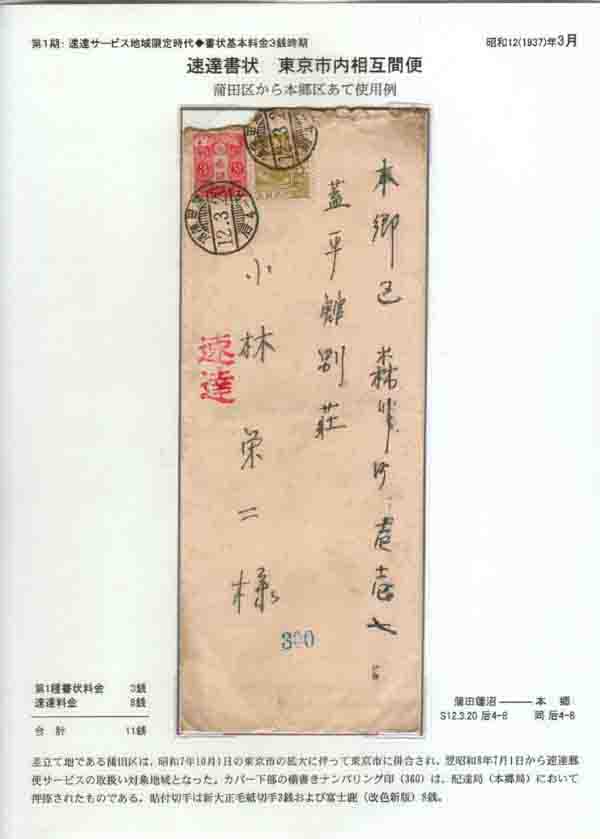 第1期：速達サービス地域限定時代◆書状基本料金3銭時期
昭和12(1937)年3月
速達書状　東京市内相互間便
蒲田区から本郷区あて使用例
本郷区 森川町 壱壱七
蓋平館別荘
小林 栄二 様
速達
12.3.2
12.3.2
360
第1種書状料金　3銭
速達料金　8銭
合計　11銭
蒲田蓮沼―――本郷
S12.3.20 后4-8　同 后4-8
差立て地である蒲田区は、昭和7年10月1日の東京市の拡大に伴って東京市に併合され、翌昭和8年7月1日から速達郵
便サービスの取扱い対象地域となった。カバー下部の横書きナンバリング印（360）は、配達局（本郷局）において
押捺されたものである。貼付切手は新大正毛紙切手3銭および富士鹿（改色新版）8銭。